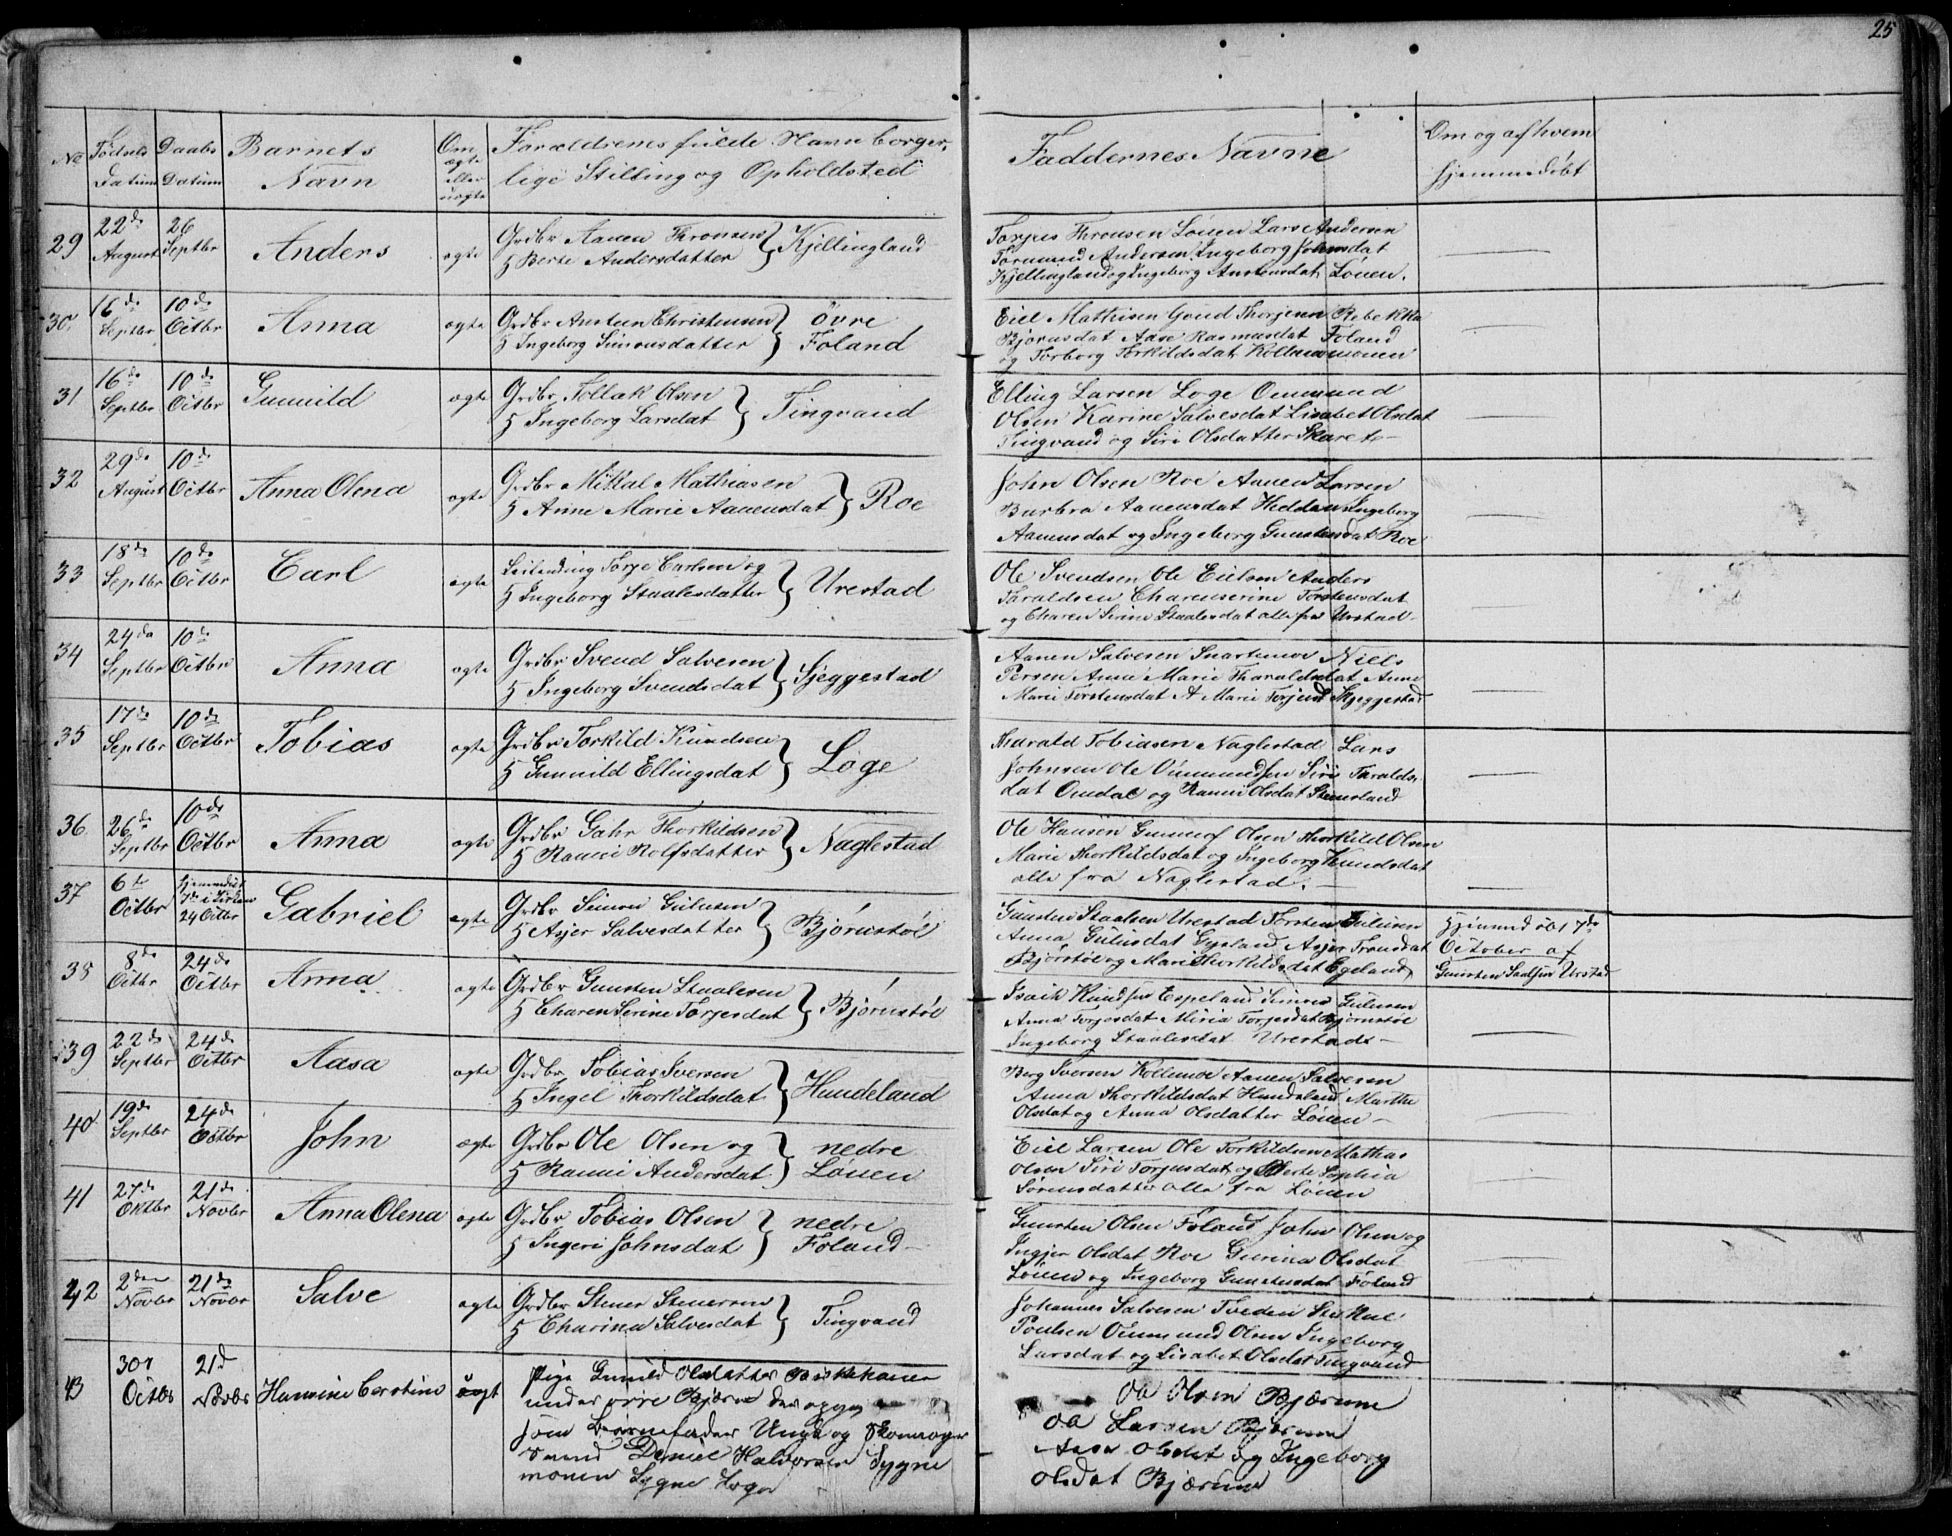 25
No Fødsels Datum Daabs Datum Barnets Navn Om ægte eller uægte Forældrenes fulde Navn borger-
lige Stilling og Opholdsted
Faddernes Navne
Om og af hvem
hjemmedøbt
29 22de August 26 Septbr Anders ægte Grdbr Aanen Thronsen
H Berte Andersdatter } Kjellingland
Torjus Thronsen Løuen Lars Andersen
Andersen Ingeborg Johnsdat
Kjellingland og Ingeborg Austensdat Løuen.
30 16de Septbr 10de Octbr Anna ægte Grdbr Austen Christensen
H Ingeborg Simonsdatter } øvre Foland
Eiel Mathisen Rebekka
Bjørnsdat Aase Rasmusdat Foland
og Torborg Torkildsdat
31 16de Septbr 10de Octbr Gunnild ægte Grdbr Tollak Olsen
H Ingeborg Larsdat } Tingvand
Elling Larsen Løge Ommund
Olsen Karine Salvesdat Lisabet Olsdat
Tingvand og Siri Olsdatter Skarete
32 29de August 10de Octbr Anna Olena ægte Grdbr Mikkal Mathiasen
H Anne Marie Aanensdat } Roe
John Olsen Roe Aanen Larsen
Barbra Aanensdat Heddan Ingeborg
Aanensdat og Ingeborg Gunstensdat Roe
33 18de Septbr 10de Octbr Carl ægte Leilending Torje Carlsen og
H Ingeborg Staalesdatter } Urestad
Ole Svendsen Ole Eielsen Anders
Taraldsen Charenserine Torstensdat
og Charen Serine Staalesdat alle fra Urstad
34 24de Septbr 10de Octbr Anna ægte Grdbr Svend Salvesen
H Ingeborg Svendsdat } Sjeggestad
Aanen Salvesen Snartemoe Niels
Persen Anne Marie Tharaldsdat Anne
Marie Torstensdat A Marie Skjeggestad
35 17de Septbr 10de Octbr Tobias ægte Grdbr Torkild Knudsen
H Gunnild Ellingsdat } Løge
Harald Tobiasen Naglestad Lars
Johnsen Ole Ommundsen Siri Taralds-
dat Omdal og Ranni Olsdat Stensland
36 26de Septbr 10de Octbr Anna ægte Grdbr Gahr Thorkildsen
H Ranni Rolfsdatter } Naglestad
Ole Hansen Gunuf Olsen Thorkild Olsen
Marie Thorkildsdat og Ingeborg Knudsdat
alle fra Naglestad.
37 6te Octbr hjemmedøbt 7de 24 Octbr Gabriel ægte Grdbr Simon Guluesen
H Asjer Salvesdatter } Bjørnstøl
Gunsten Staalsen Urestad Torsten Gulusen
Anna Gulusdat Egeland Asjer Tronsdat
Bjørnstøl og Marie Thorkildsdat Egeland
Hjemmedøbt 7de
October af
Gunsten Staalsen Urstad
38 8de Octbr 24de Octbr Anna ægte Grdbr Gunsten Staalesen
H Charen Serine Torjesdat } Bjørnstøl
Isaik Knudsen Espeland Simon Gulusen
Anna Torjesdat Miria Torjesdat Bjørnstøl
Ingeborg Staalesdat Urestad
39 22de Septbr 24de Octbr Aasa ægte Grdbr Tobias Iversen
H Ingel Thorkildsdat } Hundeland
Berg Iversen Kollemoe Aanen Salvesen
Anna Thorkildsdat Hundeland Marthe
Olsdat og Anna Olsdatter Løuen
40 19de Septbr 24de Octbr John ægte Grdbr Ole Olsen og
H Ranni Andersdat } nedre Løuen
Eiel Larsen Ole Torkildsen Mathas
Olsen Siri Torjusdat og Berte Sophia
Sørensdatter alle fra Løuen
41 27de Oktbr 21de Novbr Anna Olena ægte Grdbr Tobias Olsen
H Ingeri Johnsdat } nedre Foland
Gunsten Olsen Foland John Olsen og
Ingjer Olsdat Roe Gunina Olsdat
Løuen og Ingeborg Gunstensdat Foland
42 2den Novbr 21de Novbr Salve ægte Grdbr Stener Stenersen
H Charina Salvesdat } Tingvand
Johannes Salvesen Tveden
Poulsen Ommund Olsen Ingeborg
Larsdat og Lisabet Olsdat Tingvand
43 30r Octbr 21d Novbr Hansine Cerstine uægt Pige Gunild Olsdatter
under øvre Bjærum der opgav
som Barnefader Ungk og Skomager
Daniel Halvorsen Lygne
monen Lygne Sogn
Olsen Bjærum
Larsen Bjærum
Aasa Olsdat og Ingeborg
Olsdat Bjærum